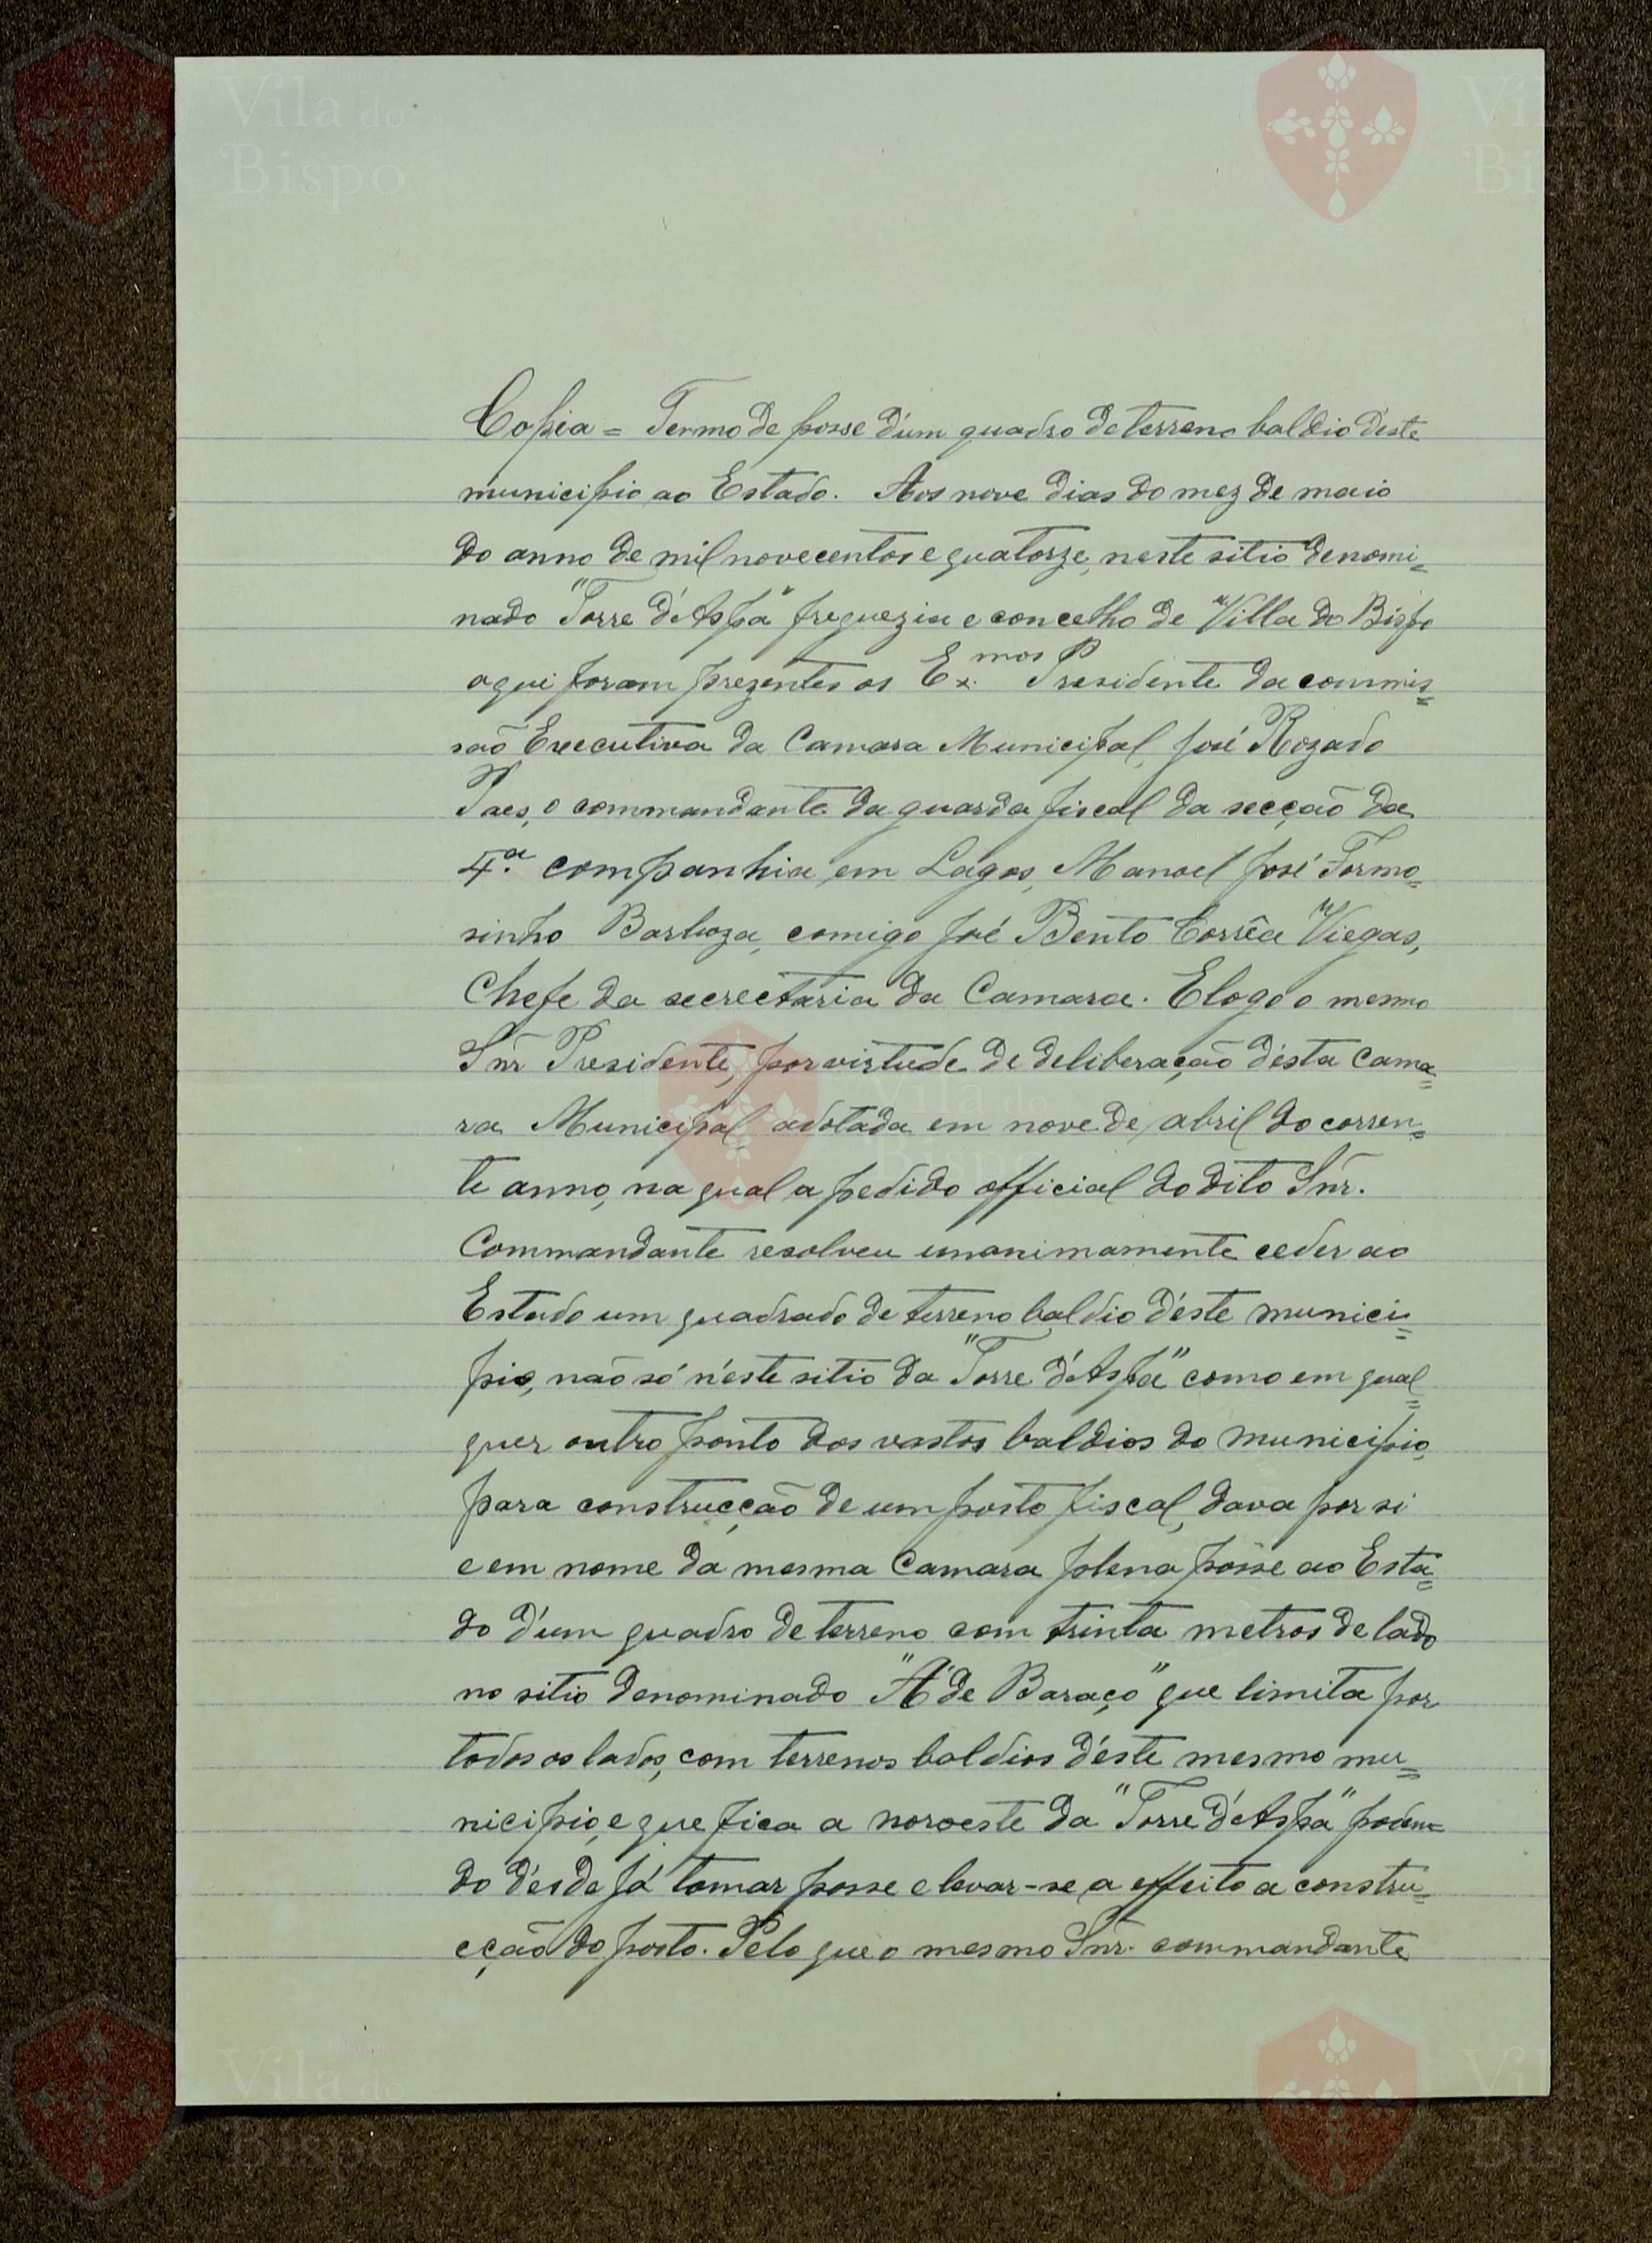 Copia = Termo de posse d'um quadro de terreno baldio d'este
municipio ao Estado. Aos nove dias do mez de maio
do anno de mil novecentos e quatorze, neste sitio denomi=
nado "Torre d'Aspa" freguezia e concelho de Villa do Bispo
aqui foram prezentes os Ex.mos Presidente da commis=
são Executiva da Camara Municipal, José Rozado
Paes, o commandante da guarda fiscal da secção da
4.ª companhia em Lagos, Manoel José Formo=
sinho Barboza, comigo José Bento Corrêa Viegas,
Chefe da secrectaria da Camara. E logo o mesmo
Snr Presidente, por virtude de deliberação d'esta Cama=
ra Municipal adotada em nove de abril do corren=
te anno, na qual a pedido official do dito Snr.
Commandante resolveu unanimamente ceder ao
Estado um quadrado de terreno baldio d'este munici=
pio, não só n'este sitio da "Torre d'Aspa" como em qual=
quer outro ponto dos vastos baldios do municipio,
para construcção de um posto fiscal, dava por si
e em nome da mesma Camara plena posse ao Esta=
do d'um quadro de terreno com trinta metros de lado
no sitio denominado "A de Baraço" que limita por
todos os lados, com terrenos baldios d'este mesmo mu=
nicipio, e que fica a noroeste da "Torre d'Aspa" poden=
do désde já tomar posse e levar-se a effeito a constru=
cção do posto. Pelo que o mesmo Snr. commandante
Vila do
Bispo